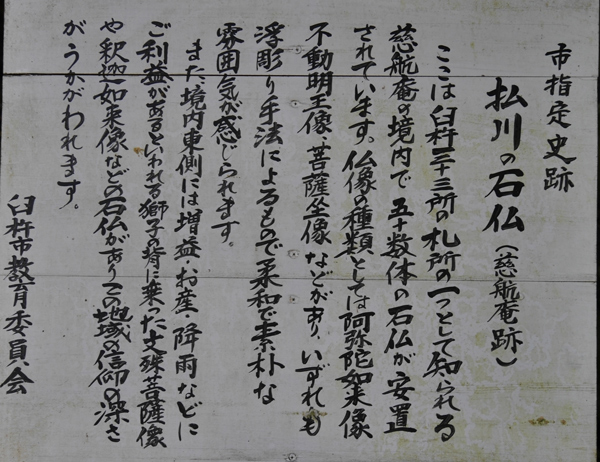 市指定史跡
払川の石仏（慈航庵跡）
ここは臼杵三十三所の札所の一つとして知られる
慈航庵の境内で五十数体の石仏が安置
されています。仏像の種類としては阿弥陀如来像
不動明王像・菩薩坐像などがあり、いずれも
浮彫り手法によるもので柔和で素朴な
雰囲気が感じられます。
また、境内東側には増益・お産・降雨などに
ご利益があるといわれる獅子の背に乗った文殊菩薩像
や釈迦如来像などの石仏がありこの地域の信仰の深さ
がうかがわれます。
臼杵市教育委員会